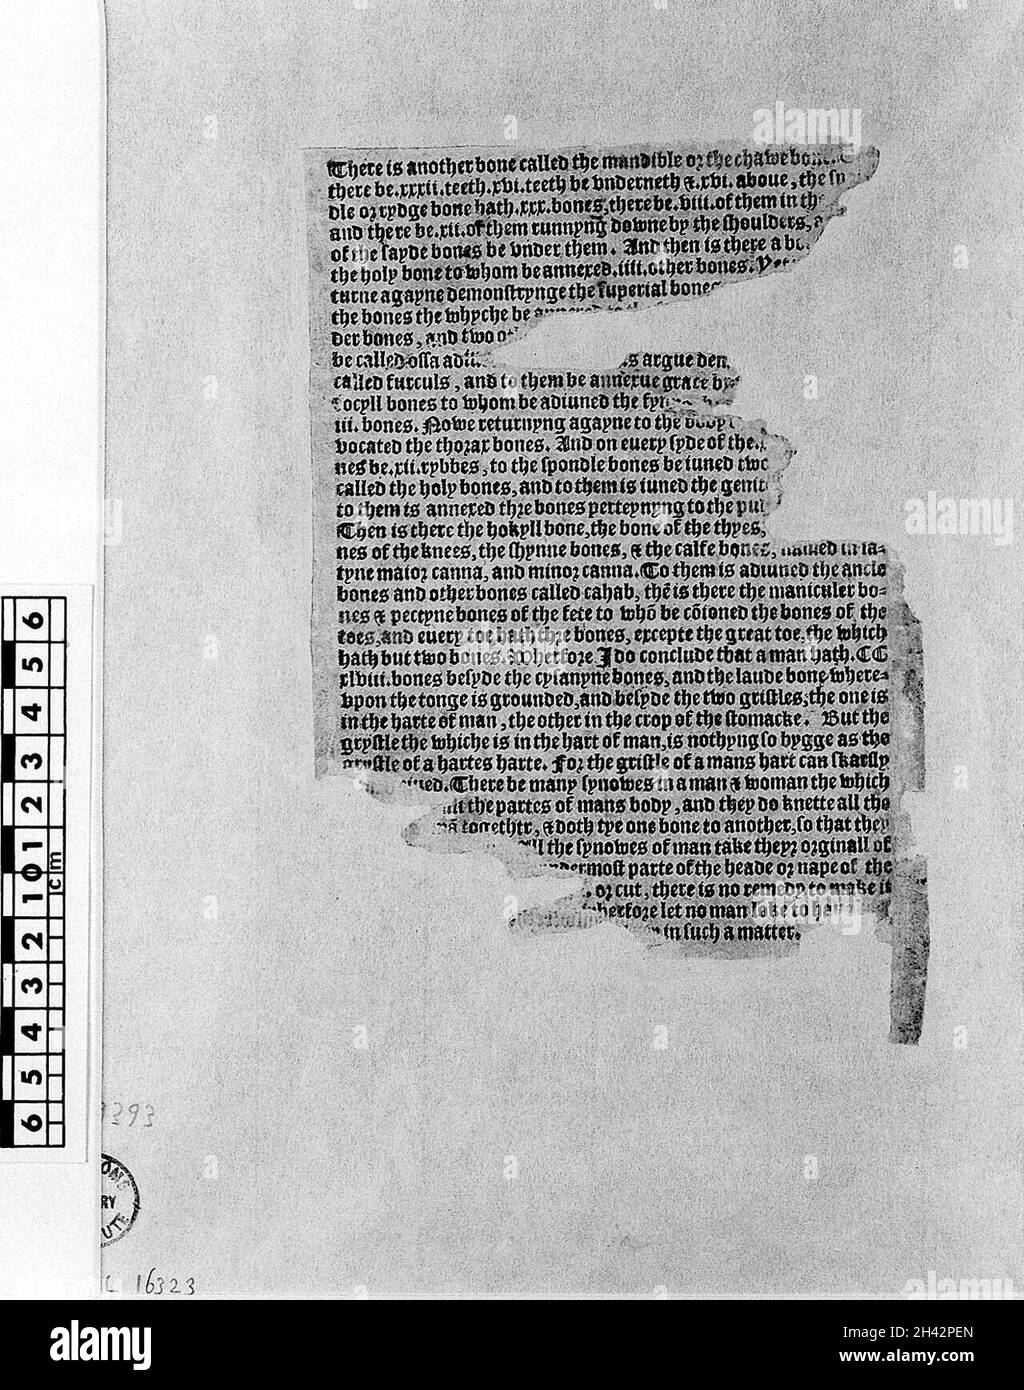 There is another bone called the mandible or the chawe
there be.xxxii.teeth.xvi.teeth be vnderneth &.xvi. aboue, the
dle or rydge bone hath.xxx.bones,there be.viii.of them in
and there be.xii.of them runnyng downe by the shoulders,
of the sayde bones be vnder them. And then is there a
the holy bone to whom be annexed.iiii.other bones.
turne agayne demonstrynge the superial bones
the bones the whyche be annexed to
der bones, and two
be called ossa argue
called furculs, and to them be annexue grace
focyll bones to whom be adiuned the
iii. bones. Nowe returnyng agayne to the
vocated the thorax bones. And on euery syde of the.
nes be.xii.rybbes, to the spondle bones be iuned two
called the holy bones,and to them is iuned the
to them is annexed thre bones perteynyng to the
Then is there the hokyll bone,the bone of the thyes,
nes of the knees, the shynne bones, & the calfe bones, named in la-
tyne maior canna, and minor canna. To them is adiuned the ancle
bones and other bones called cahab, thẽ is there the maniculer bo-
nes & pectyne bones of the fete to whõ be cõioned the bones of the
toes,and euery toe hath thre bones, excepte the great toe,the which
hath but two bones. Wherfore I do conclude that a man hath.CC
xlviii.bones besyde the bones, and the laude bone where-
vpon the tonge is grounded,and besyde the two gristles,the one is
in the harte of man, the other in the crop of the stomacke. But the
grystle the whiche is in the hart of man,is nothyng so bygge as the
grystle of a hartes harte. For the gristle of a mans hart can skarsly
There be many synowes in a man & woman the which
the partes of mans body, and they do knette all the
together, & doth tye one bone to another,so that they
the synowes of man take theyr orginall of
parte of the heade or nape of the
or cut, there is no remedy to make it
let no man loke to
in such a matter.
6 5 4 3 2 1 0 1 2 3 4 5 6
cm
16323
alamy
alamy
alamy
Image ID: 2H42PEN
www.alamy.com